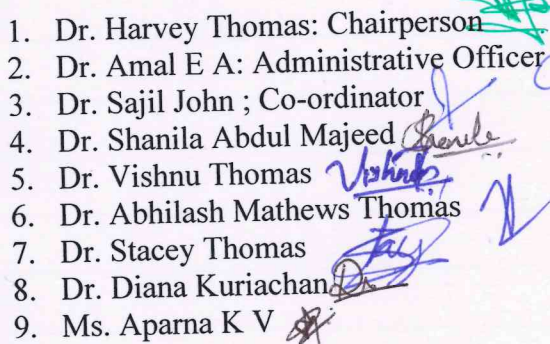 1. Dr. Harvey Thomas: Chairperson
2. Dr. Amal E A: Administrative Officer
3. Dr. Sajil John ; Co-ordinator
4. Dr. Shanila Abdul Majeed
5. Dr. Vishnu Thomas
6. Dr. Abhilash Mathews Thomas
7. Dr. Stacey Thomas
8. Dr. Diana Kuriachan
9. Ms. Aparna K V